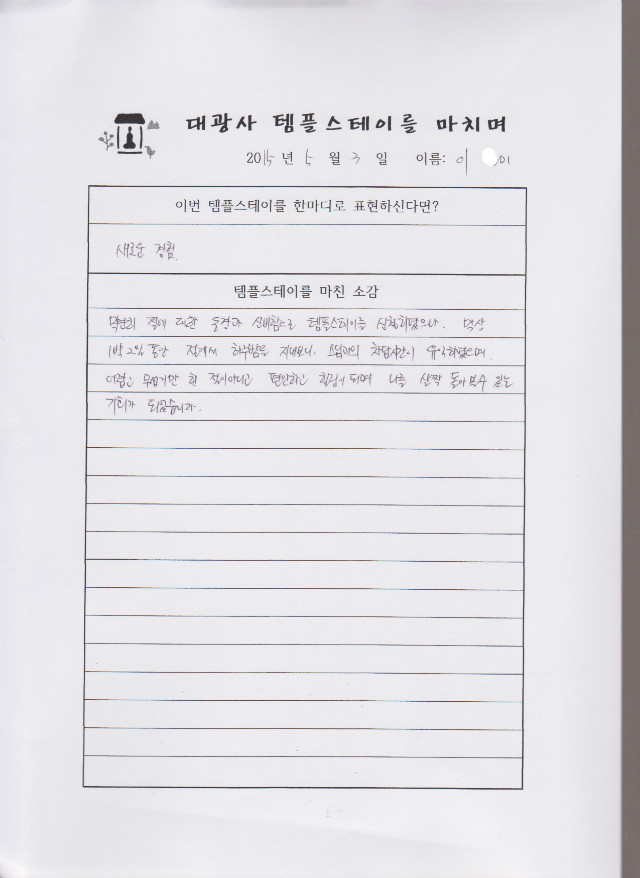 대광사 템플스테이를 마치며
2015 년 5 월 3 일 이름: 이
이번 템플스테이를 한마디로 표현하신다면?
새로운 경험.
템플스테이를 마친 소감
막연히 절에 대한 동경과 신비함으로 템플스테이를 신청하였으나. 막상
1박 2일 동안 절에서 하룻밤을 지내보니. 스님과의 차담시간이 유익하였으며.
어렵고 무섭기만 한 절이아니고 편안하고 힐링이 되며 나를 살짝 돌아볼수 있는
기회가 되었습니다.